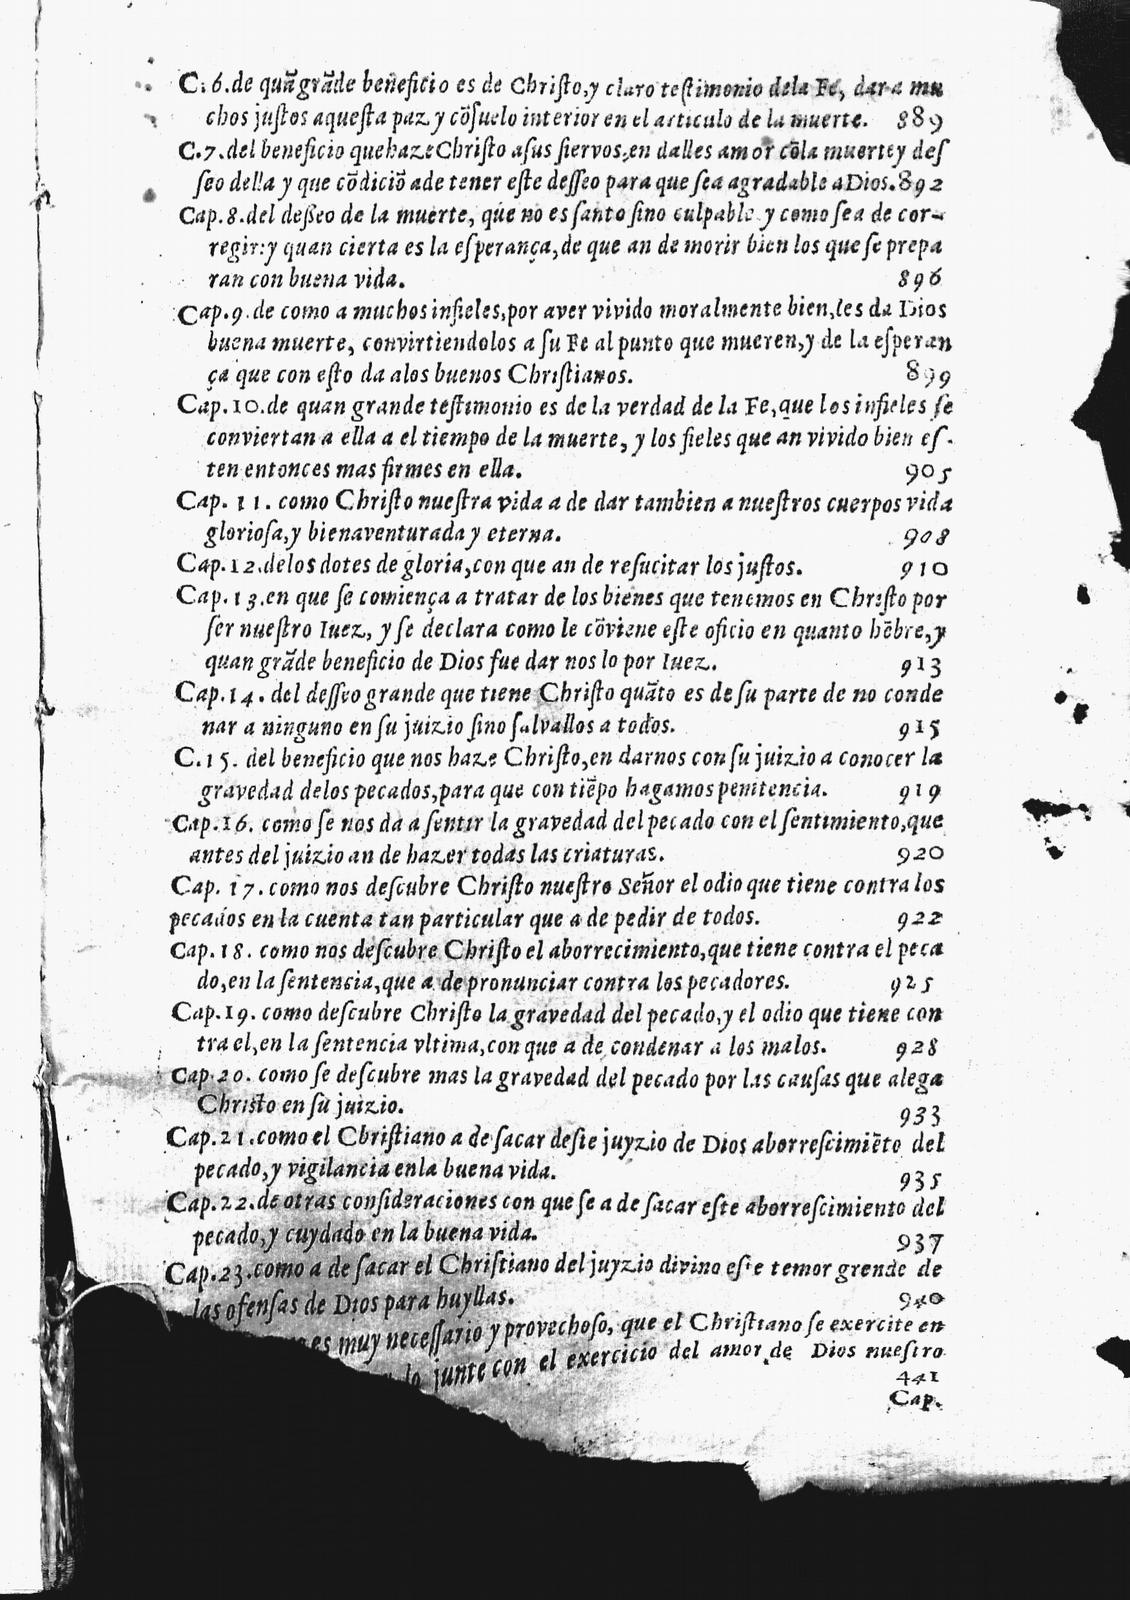 C.6.de quã grãde beneficio es de Christo,y claro testimonio dela Fe, dar a mu
chos justos aquesta paz y cõsuelo interior en el articulo de la muerte. 889
C.7.del beneficio que haze Christo a sus siervos,en dalles amor cõla muerte y des
seo della y que cõdiciõ a de tener este desseo para que sea agradable a Dios.892
Cap.8.del deßeo de la muerte, que no es santo sino culpable y como sea de cor-
regir:y quan cierta es la esperança,de que an de morir bien los que se prepa
ran con buena vida. 896
Cap.9.de como a muchos infieles,por aver vivido moralmente bien,les da Dios
buena muerte, convirtiendolos a su Fe al punto que mueren,y de la esperan
ça que con esto da alos buenos Christianos. 899
Cap.10.de quan grande testimonio es de la verdad de la Fe,que los infieles se
conviertan a ella a el tiempo de la muerte, y los fieles que an vivido bien es-
ten entonces mas firmes en ella. 905
Cap. 11. como Christo nuestra vida a de dar tambien a nuestros cuerpos vida
gloriosa,y bienaventurada y eterna. 908
Cap.12.delos dotes de gloria,con que an de resucitar los justos. 910
Cap.13.en que se comiença a tratar de los bienes que tenemos en Christo por
ser nuestro Iuez, y se declara como le cõviene este oficio en quanto hõbre,y
quan grãde beneficio de Dios fue dar nos lo por Iuez. 913
Cap.14. del desseo grande que tiene Christo quãto es de su parte de no conde
nar a ninguno en su juizio sino salvallos a todos. 915
C.15. del beneficio que nos haze Christo,en darnos con su juizio a conocer la
gravedad delos pecados,para que con tiẽpo hagamos penitencia. 919
Cap.16. como se nos da a sentir la gravedad del pecado con el sentimiento,que
antes del juizio an de hazer todas las criaturas. 920
Cap. 17. como nos descubre Christo nuestro Señor el odio que tiene contra los
pecados en la cuenta tan particular que a de pedir de todos. 922
Cap.18. como nos descubre Christo el aborrecimiento,que tiene contra el peca
do,en la sentencia,que a de pronunciar contra los pecadores. 925
Cap.19. como descubre Christo la gravedad del pecado,y el odio que tiene con
tra el,en la sentencia vltima,con que a de condenar a los malos. 928
Cap.20. como se descubre mas la gravedad del pecado por las causas que alega
Christo en su juizio. 933
Cap.21.como el Christiano a de sacar deste juyzio de Dios aborrescimiẽto del
pecado,y vigilancia enla buena vida. 935
Cap.22.de otras consideraciones con que se a de sacar este aborrescimiento del
pecado,y cuydado en la buena vida. 937
Cap.23.como a de sacar el Christiano del juyzio divino este temor grende de
las ofensas de Dios para huyllas. 940
es muy necessario y provechoso, que el Christiano se exercite en
lo junte con el exercicio del amor de Dios nuestro
441
Cap.